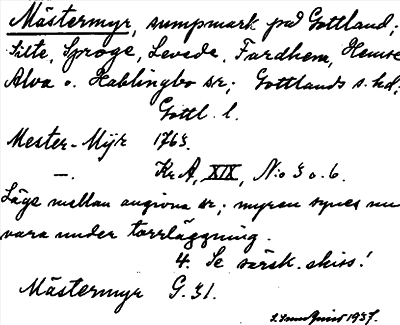 Mästermyr, sumpmark på Gottland;
Silte, Sproge, Levede, Fardhem, Hemse
Alva o. Hablingbo sr; Gottlands s. hd;
Gottl. l.
Mester-Myr 1763.
—. Kr. A, XIX, N:o 3 o. 6.
Läge mellan angivna sr; myren synes nu
vara under torrläggning.
4. Se särsk. skiss!
Mästermyr G. 31.
1937.